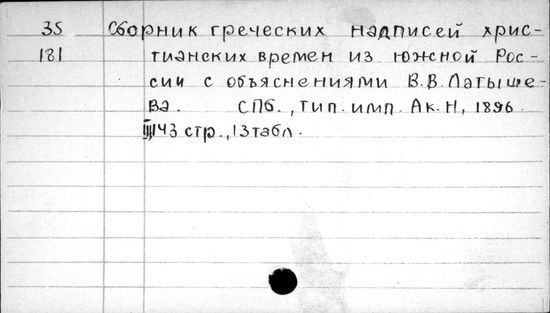 35 Сборник греческих надписей хрис-
181 тианских времен из южной Рос-
сии с объяснениями В.В. Латыше-
ва. СПб., тип. имп. Ак. Н, 1896.
III, 143 стр., 13 табл.